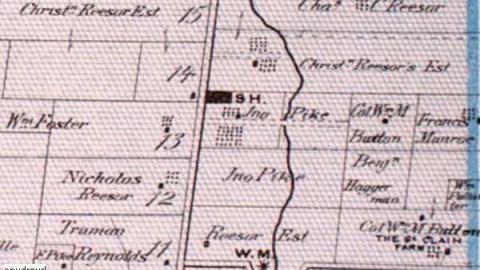 Christn Reesor Est
15
Chas C Reesor
14
Christn Reesor's Est
S.H.
Jno Pike
Col Wm M
Button
Francis
Munroe
Wm Foster
13
Benjn
Hagger
man
Nicholas
Reesor
12
Jno Pike
Wm
Truman
Reynolds
11
E Pike
Reesor Est
W.M.
Col Wm M Button
THE St CLAIN
FARM